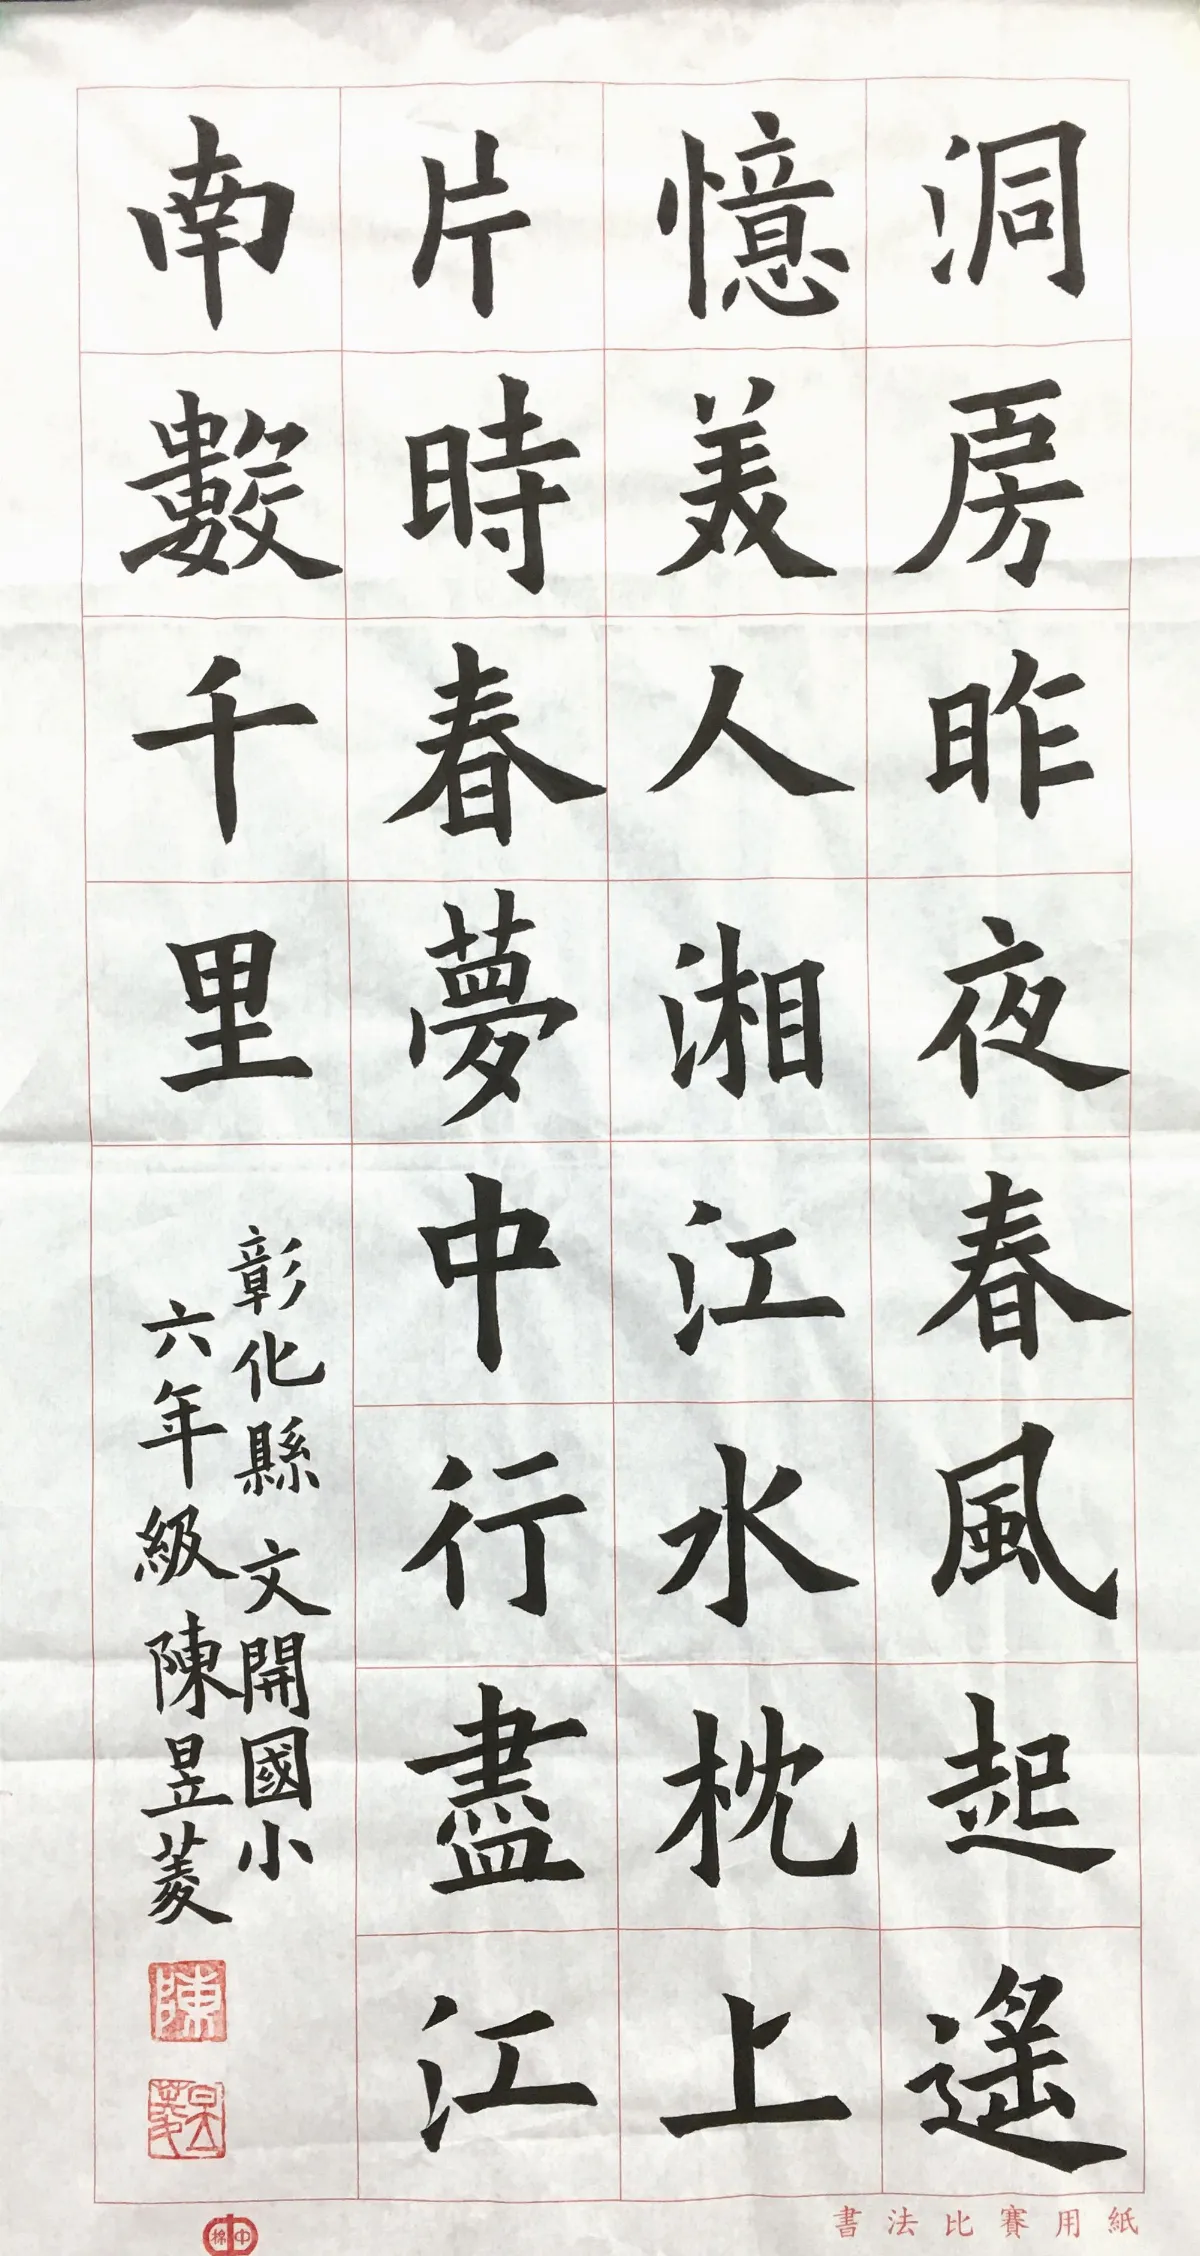 洞房昨夜春風起遙
憶美人湘江水枕上
片時春夢中行盡江
南數千里
彰化縣 文開國小
六年級 陳昱菱
陳
昱菱
書法比賽用紙
中棉